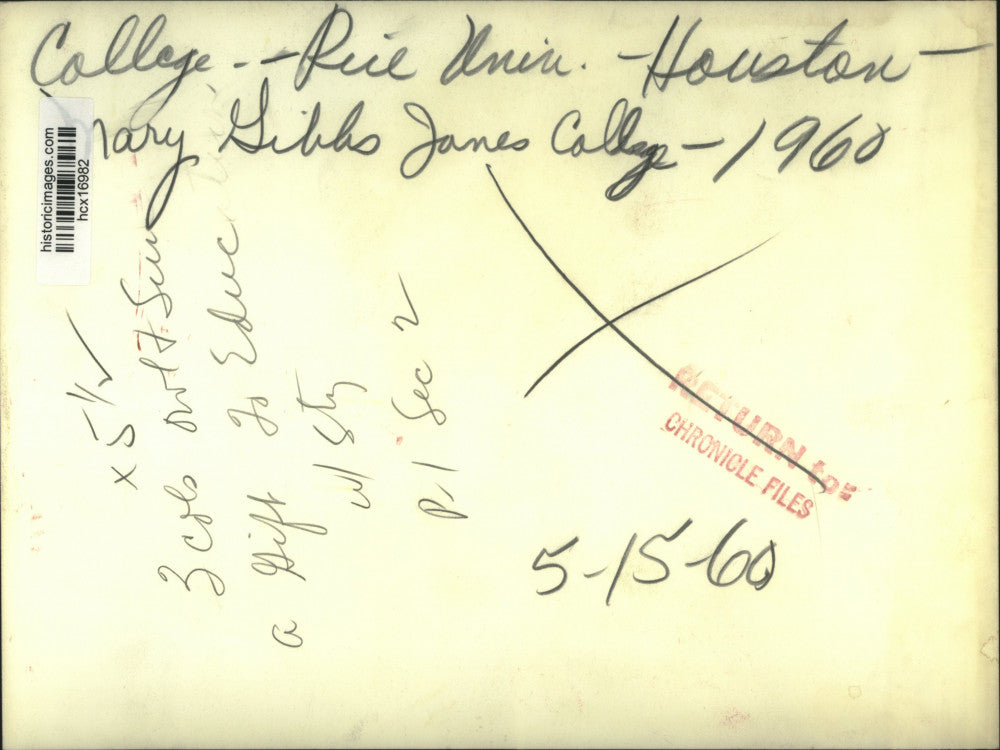 College -- Rice Univ. - Houston -
Mary Gibbs Jones College - 1960
historicimages.com
hcx16982
x 5 1/2
3 cols
Sun
a Gift To Educ
w/ Sty
P. 1 Sec 2
RETURN to:
CHRONICLE FILES
5-15-60